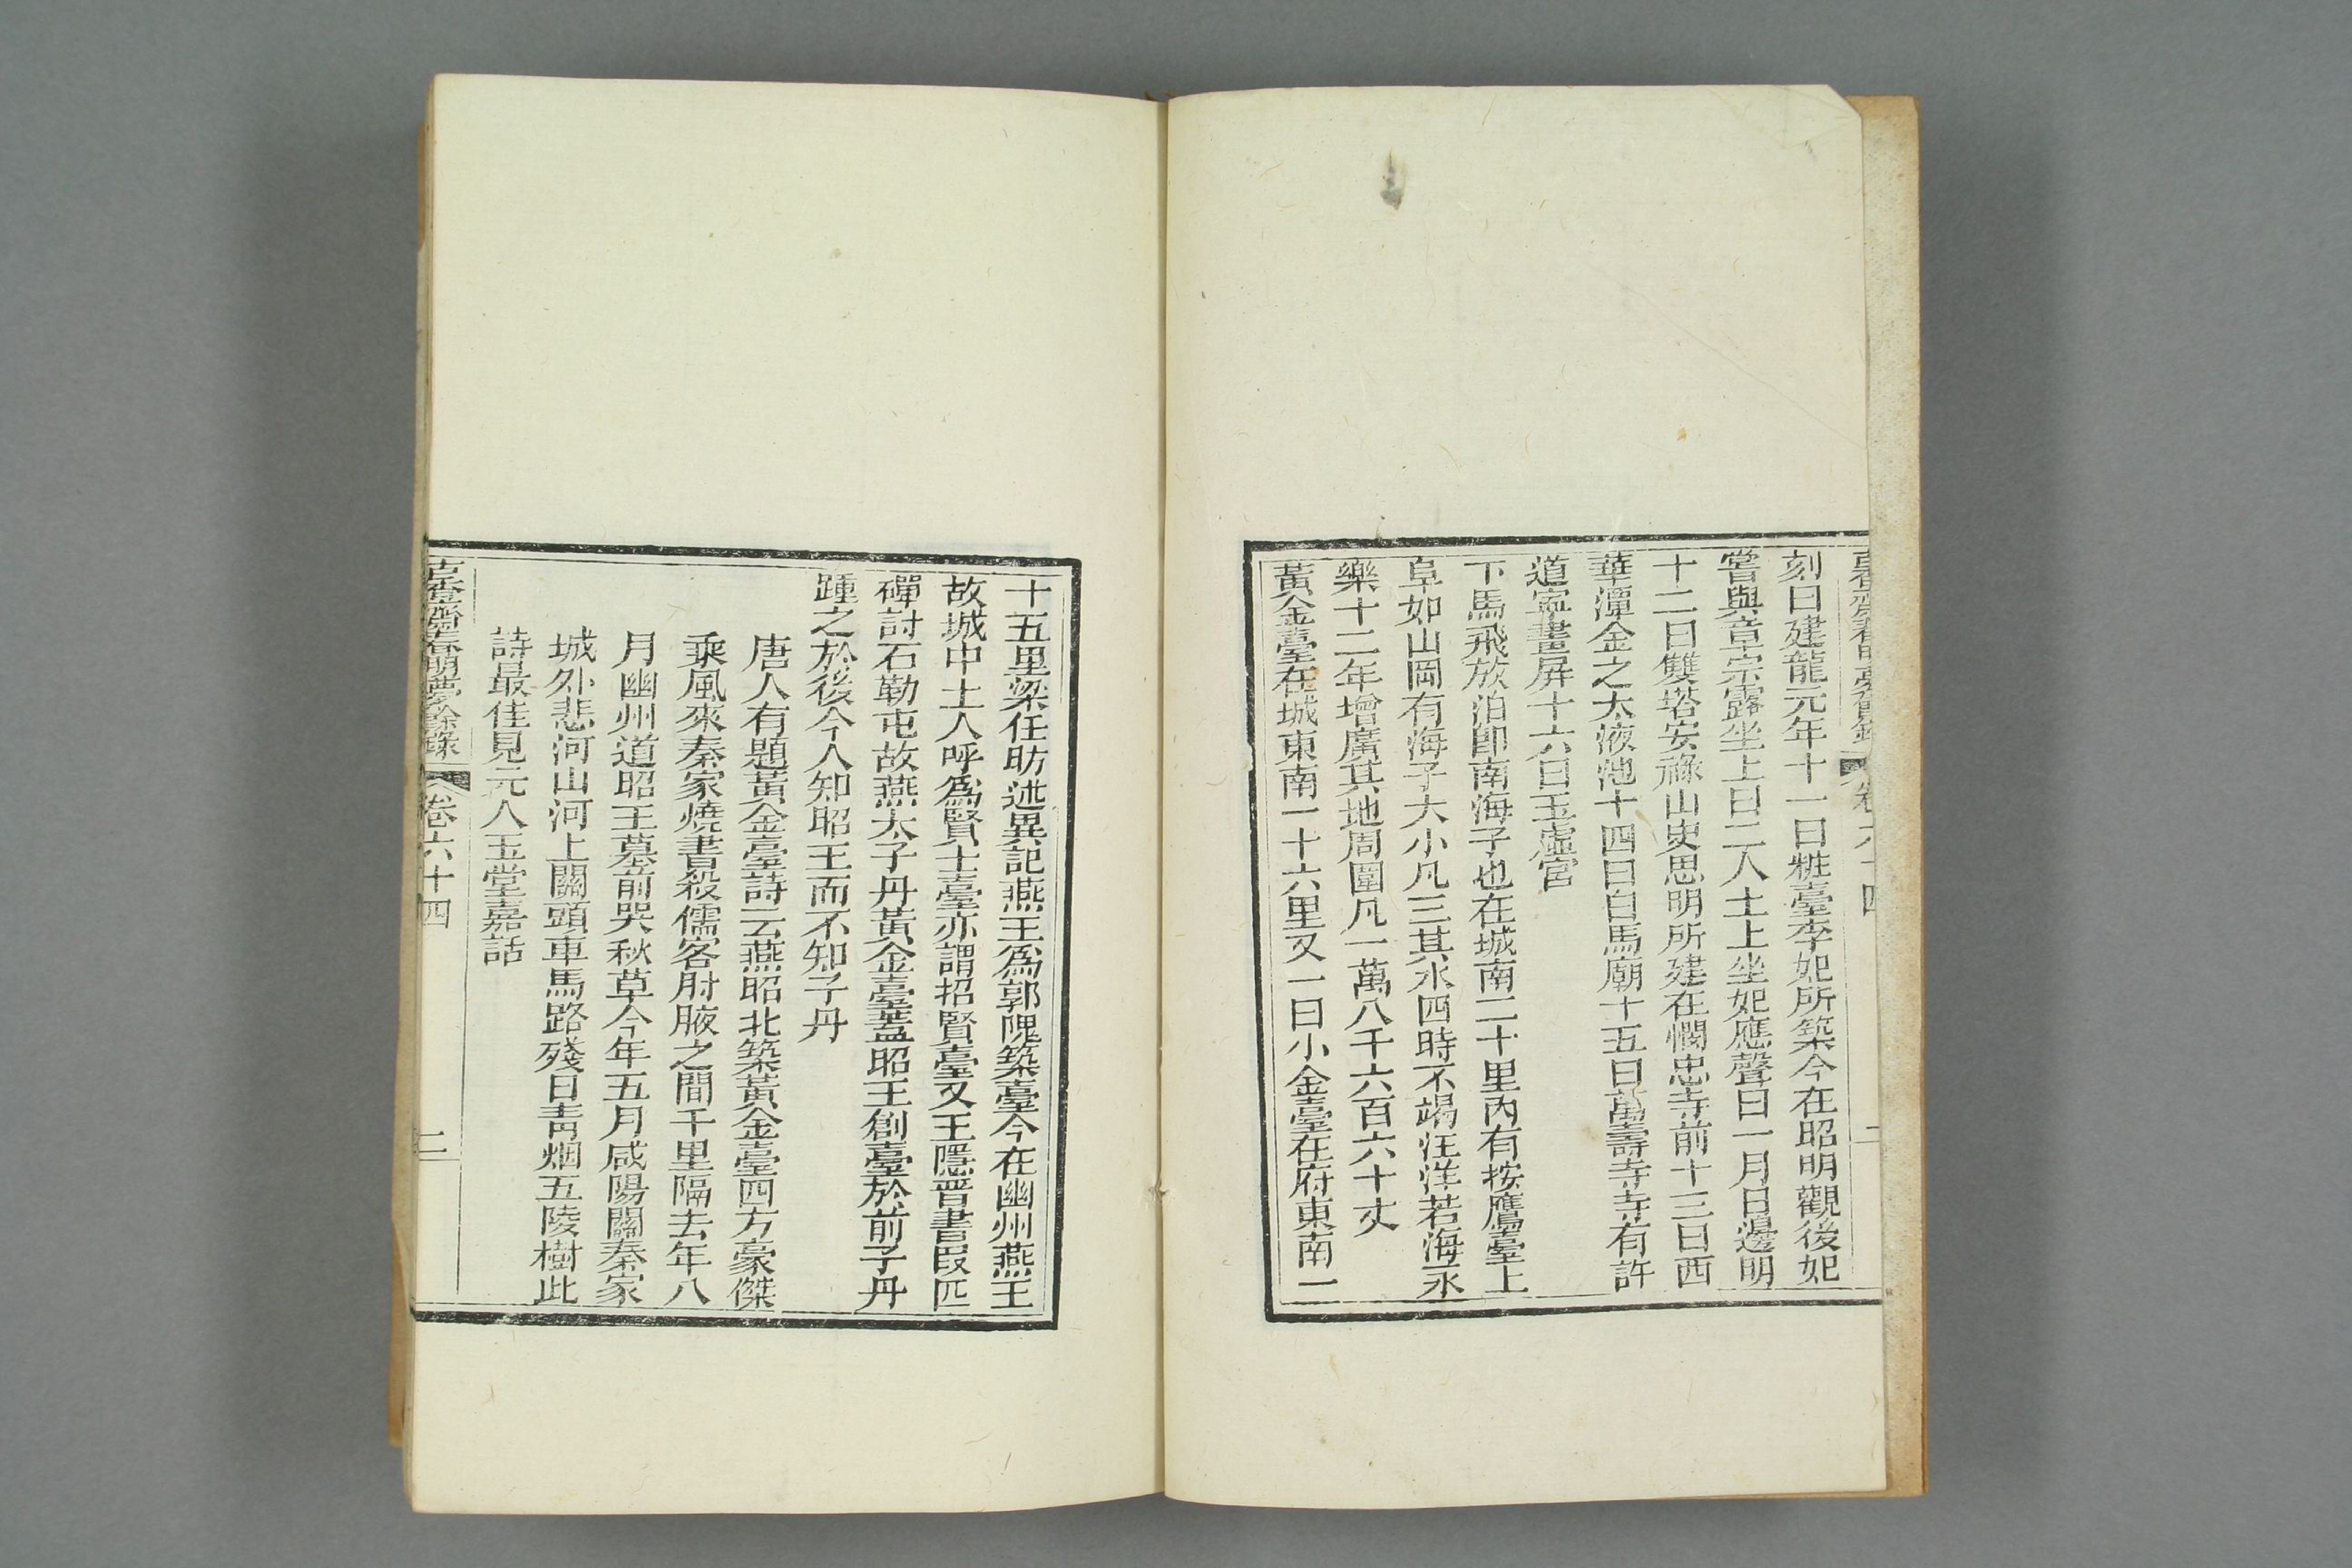 刻曰建龍元年十一曰粧臺李妃所築今在昭明觀後妃
嘗與章宗露坐上曰二人土上坐妃應聲曰一月日邊明
十二曰雙塔安祿山史思明所建在憫忠寺前十三曰西
華潭金之太液池十四曰白馬廟十五曰萬壽寺寺有許
道寧畫屏十六曰玉虛宮
下馬飛放泊卽南海子也在城南二十里內有按鷹臺上
阜如山岡有海子大小凡三其水四時不竭汪洋若海永
樂十二年增廣其地周圍凡一萬八千六百六十丈
黃金臺在城東南一十六里又一曰小金臺在府東南一
十五里梁任昉述異記燕王爲郭隗築臺今在幽州燕王
故城中土人呼爲賢士臺亦謂招賢臺又王隱晉書段匹
磾討石勒屯故燕太子丹黃金臺蓋昭王創臺於前子丹
踵之於後今人知昭王而不知子丹
唐人有題黃金臺詩云燕昭北築黃金臺四方豪傑
乘風來秦家燒書殺儒客肘腋之間千里隔去年八
月幽州道昭王墓前哭秋草今年五月咸陽關秦家
城外悲河山河上關頭車馬路殘日青烟五陵樹此
詩最佳見元人玉堂嘉話
古香齋春明夢餘錄 卷六十四 二